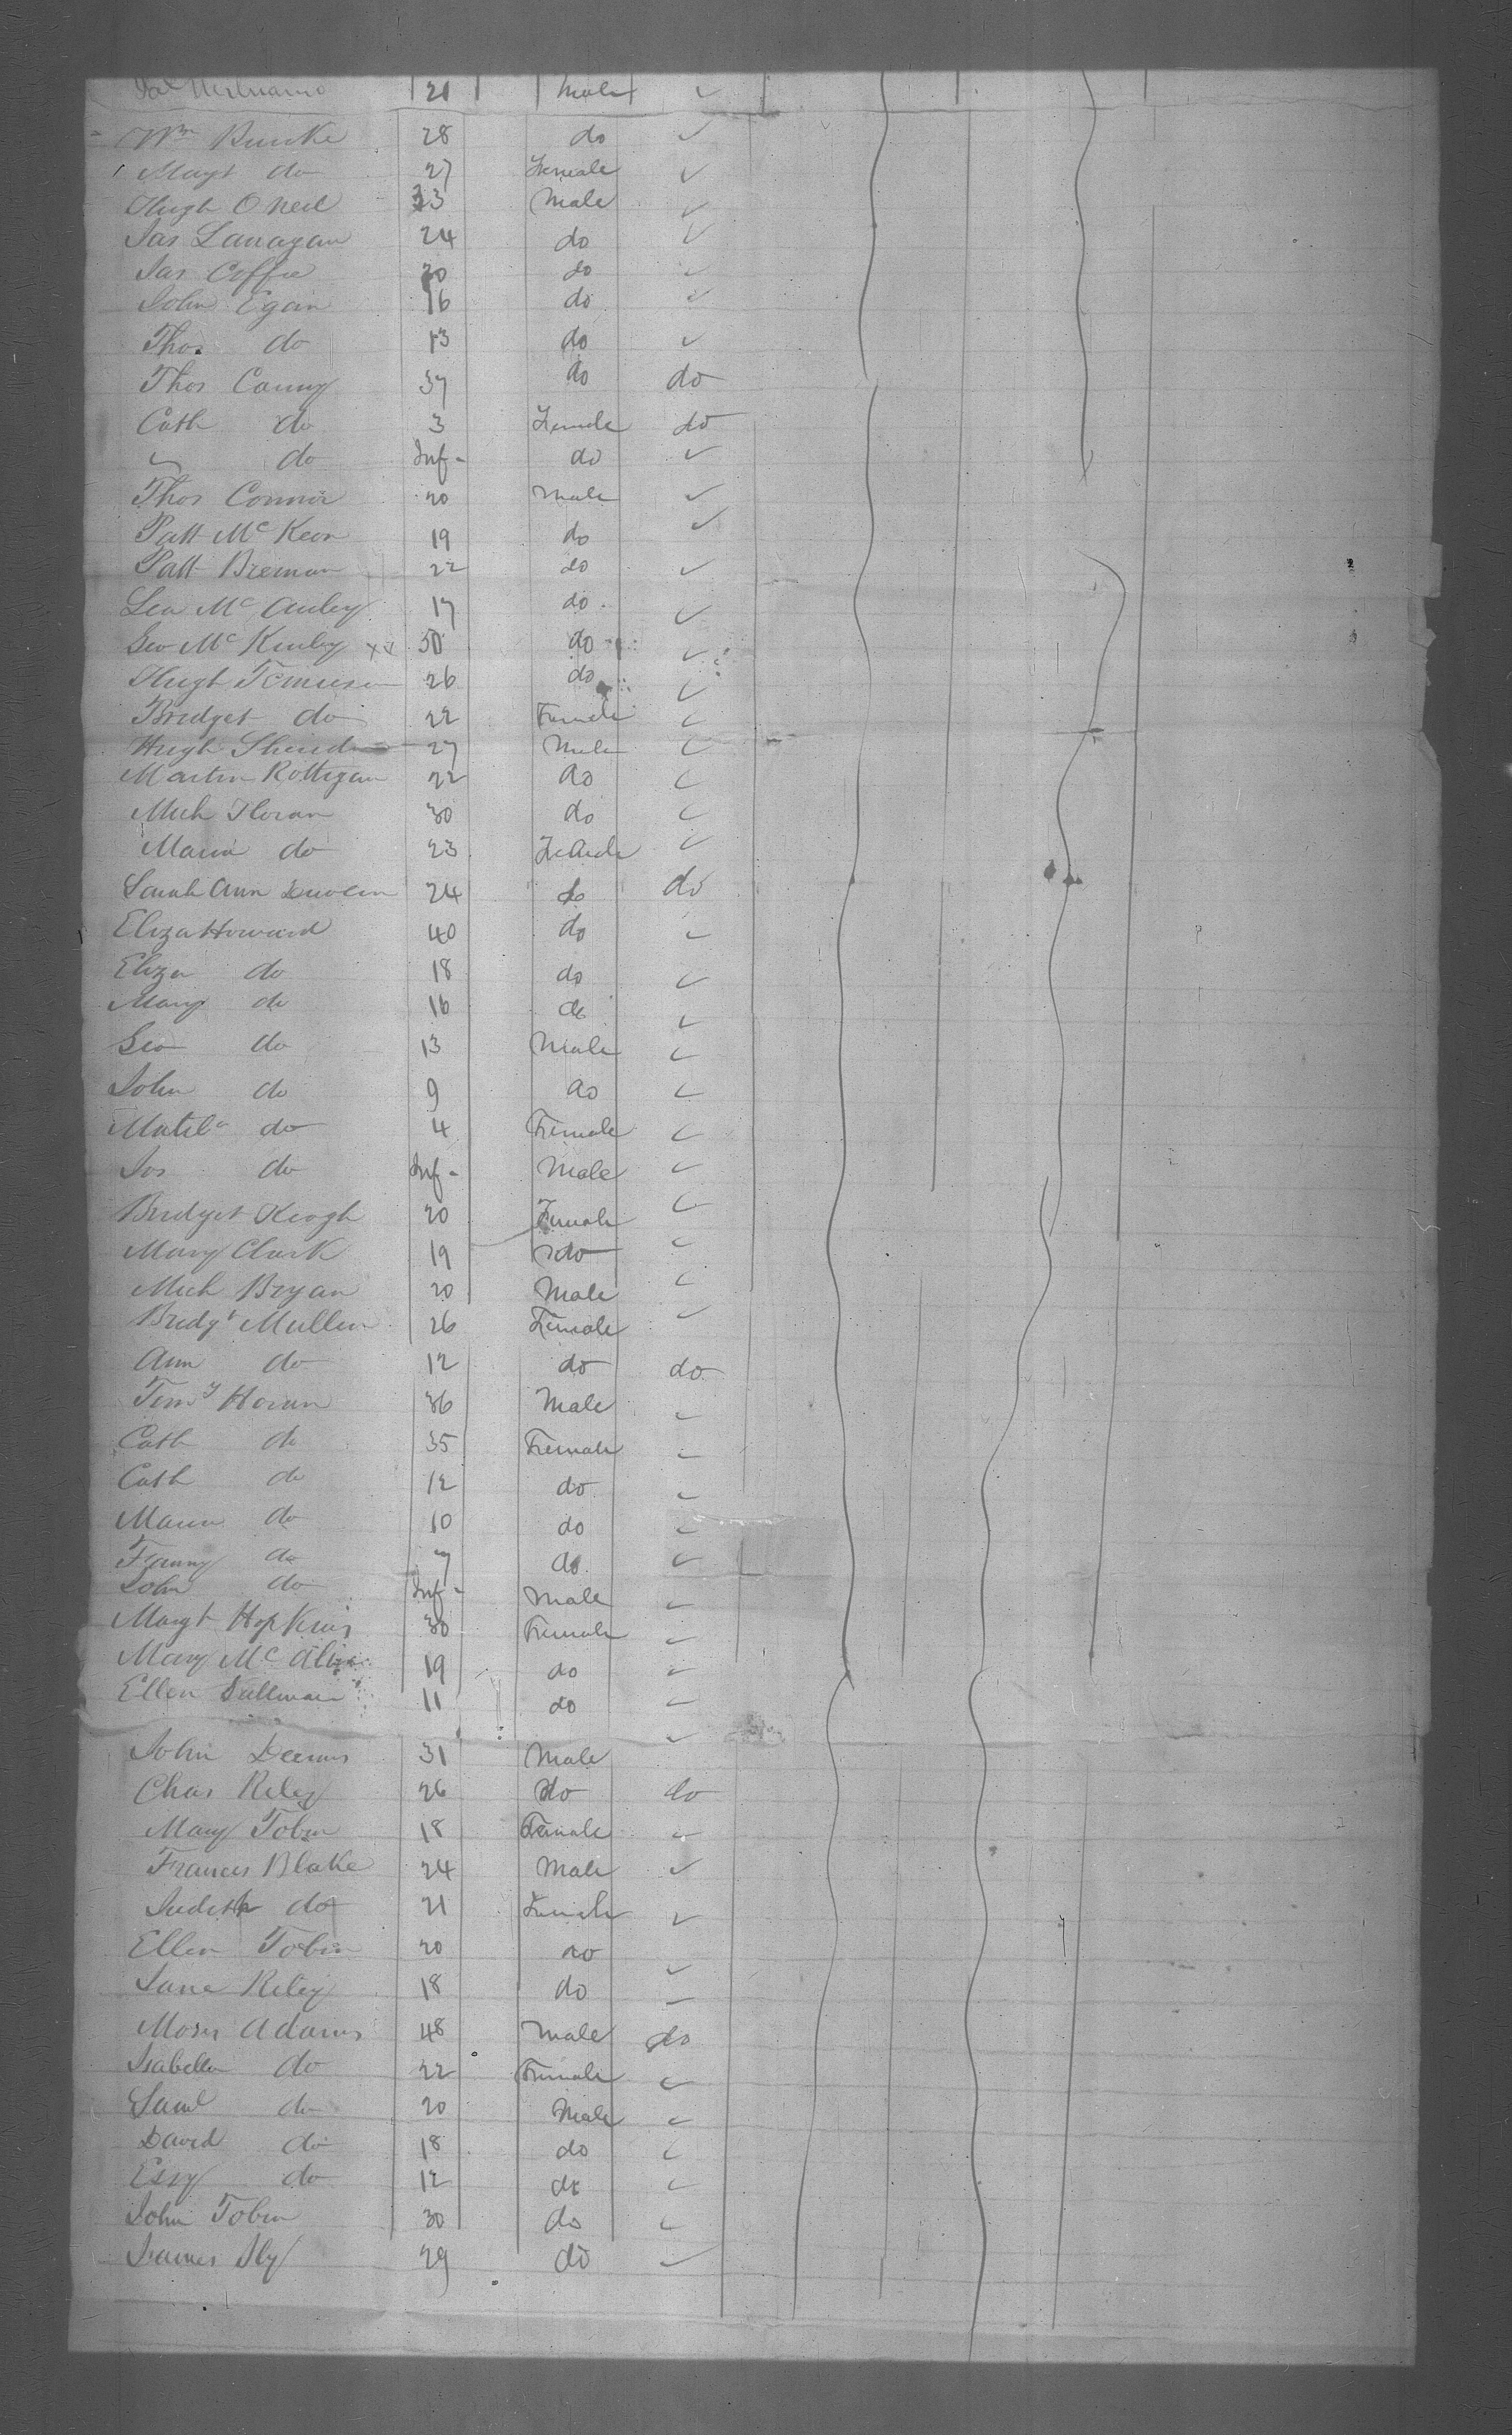 21 Male ✓
Wm Burke 28 do ✓
Magt do 27 Female ✓
Hugh O Neil 23 Male ✓
Jas Lanagan 24 do ✓
Jas Coffie 20 do ✓
John Egan 16 do ✓
Thos. do 13 do ✓
Thos Canny 37 do do
Cath do 3 Female do
" do Inf- do ✓
Thos Connor 20 Male ✓
Patt McKeon 19 do ✓
Patt Brennan 22 do ✓
Leo McAuley 17 do ✓
Geo McKinley 50 do ✓
Hugh 26 do ✓
Bridget do 22 Female ✓
Hugh 27 Male ✓
Martin Rottigan 22 do ✓
Mich Horan 30 do ✓
Maria do 23 Female ✓
Sarah Ann 24 do do
Eliza Howard 40 do ✓
Eliza do 18 do ✓
Mary do 16 do ✓
Geo do 13 Male ✓
John do 9 do ✓
Matila do 4 Female ✓
Jos do Inf- Male ✓
Bridget Keogh 20 Female ✓
Mary Clark 19 do ✓
Mich Bryan 20 Male ✓
Bridgt Mullen 26 Female ✓
Ann do 12 do do
Timy Horan 36 Male ✓
Cath do 35 Female ✓
Cath do 12 do ✓
Maria do 10 do ✓
Fanny do 7 do ✓
John do Inf- Male ✓
Margt Hopkins 30 Female ✓
Mary Mc 19 do ✓
Ellen Sullivan 11 do ✓
John Deems 31 Male ✓
Chas Riley 26 do do
Mary Tobin 18 Female ✓
Frances Blake 24 Male ✓
Judith do 21 Female ✓
Ellen Tobin 20 do ✓
Jane Riley 18 do ✓
Moses Adams 48 Male do
Isabella do 22 Female ✓
Saml do 20 Male ✓
David do 18 do ✓
Essy do 12 do ✓
John Tobin 30 do ✓
James Sly 29 do ✓